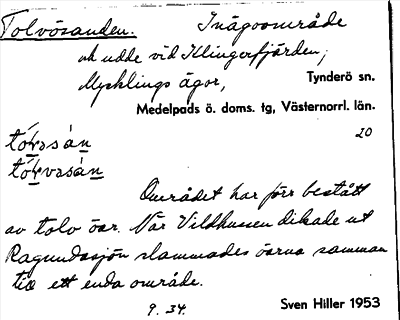 Tolvösanden. Inägoområde
ock udde vid Klingerfjärden,
Mycklings ägor, Tynderö sn.
Medelpads ö. doms. tg, Västernorrl. län.
20
Området har förr bestått
av tolv öar. När Vildhussen dikade ut
Ragundasjön slammades öarna samman
till ett enda område.
9. 34. Sven Hiller 1953